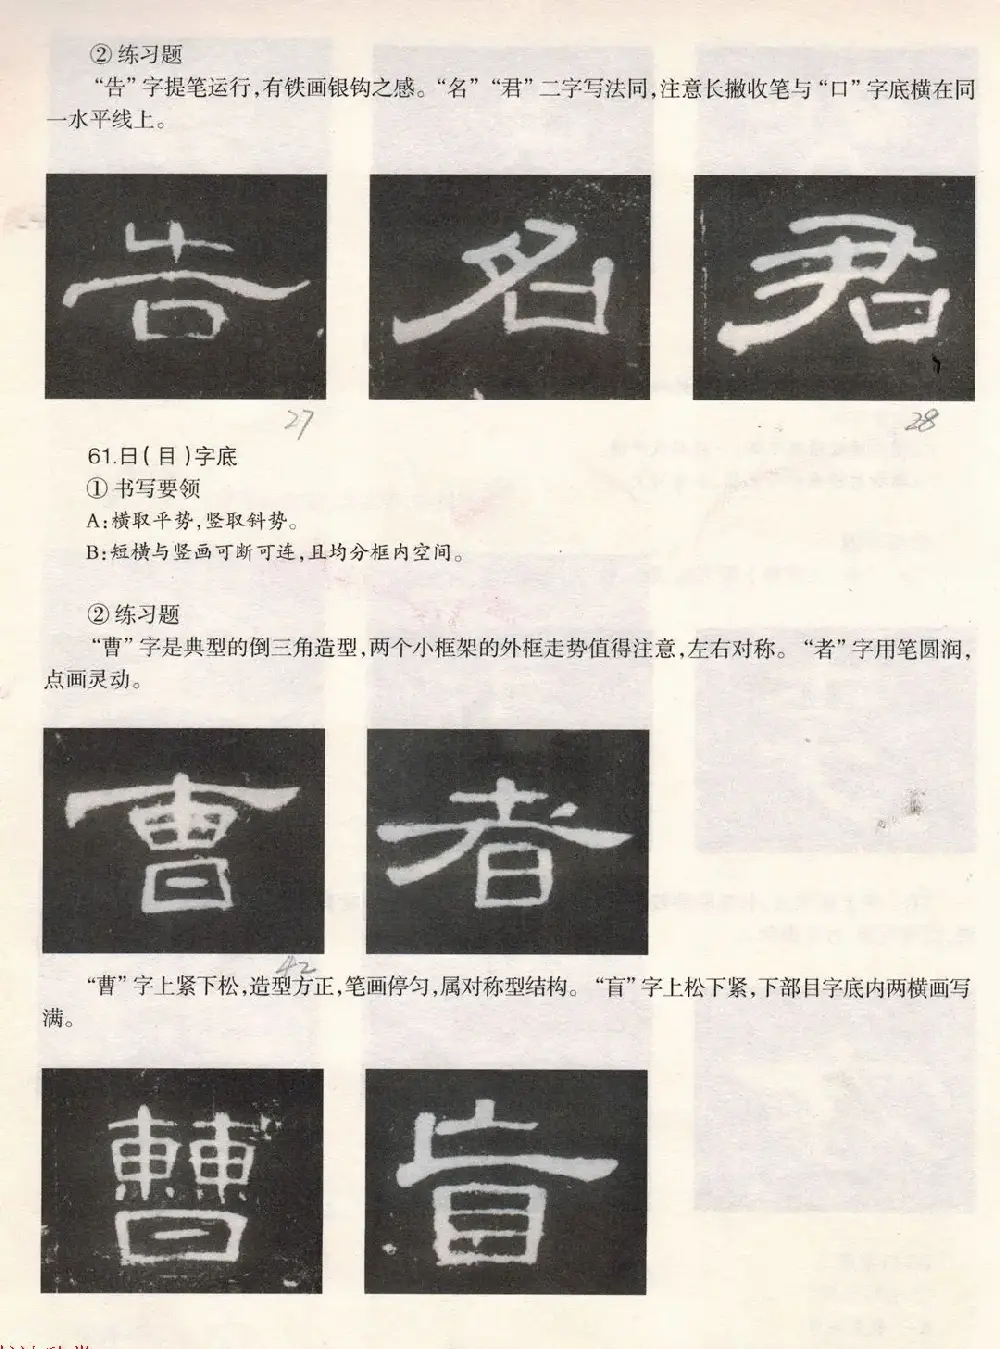 ②练习题
“告”字提笔运行,有铁画银钩之感。“名”“君”二字写法同,注意长撇收笔与“口”字底横在同
一水平线上。
告 名 君
27 28
61.日(目)字底
①书写要领
A:横取平势,竖取斜势。
B:短横与竖画可断可连,且均分框内空间。
②练习题
“曹”字是典型的倒三角造型,两个小框架的外框走势值得注意,左右对称。“者”字用笔圆润,
点画灵动。
曹 者
42
“曹”字上紧下松,造型方正,笔画停匀,属对称型结构。“盲”字上松下紧,下部目字底内两横画写
满。
曹 盲